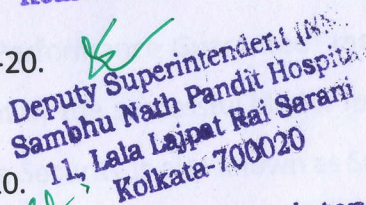 -20.
Deputy Superintendent (N
Sambhu Nath Pandit Hospital
11, Lala Lajpat Rai Sarani
0.
Kolkata-700020